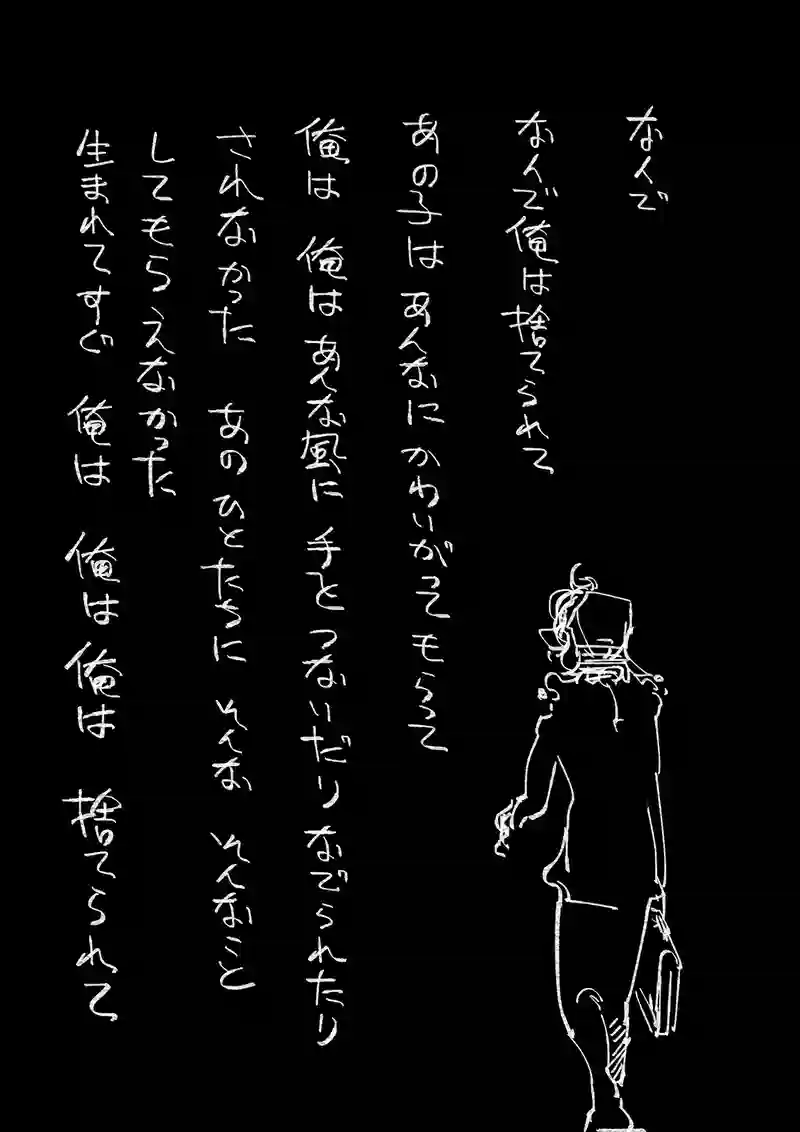 なんで
なんで俺は捨てられて
あの子は あんなに かわいがってもらって
俺は 俺は あんな風に 手とつないだり なでられたり
されなかった あのひとたちに そんな そんなこと
してもらえなかった
生まれてすぐ 俺は 俺は 俺は 捨てられて